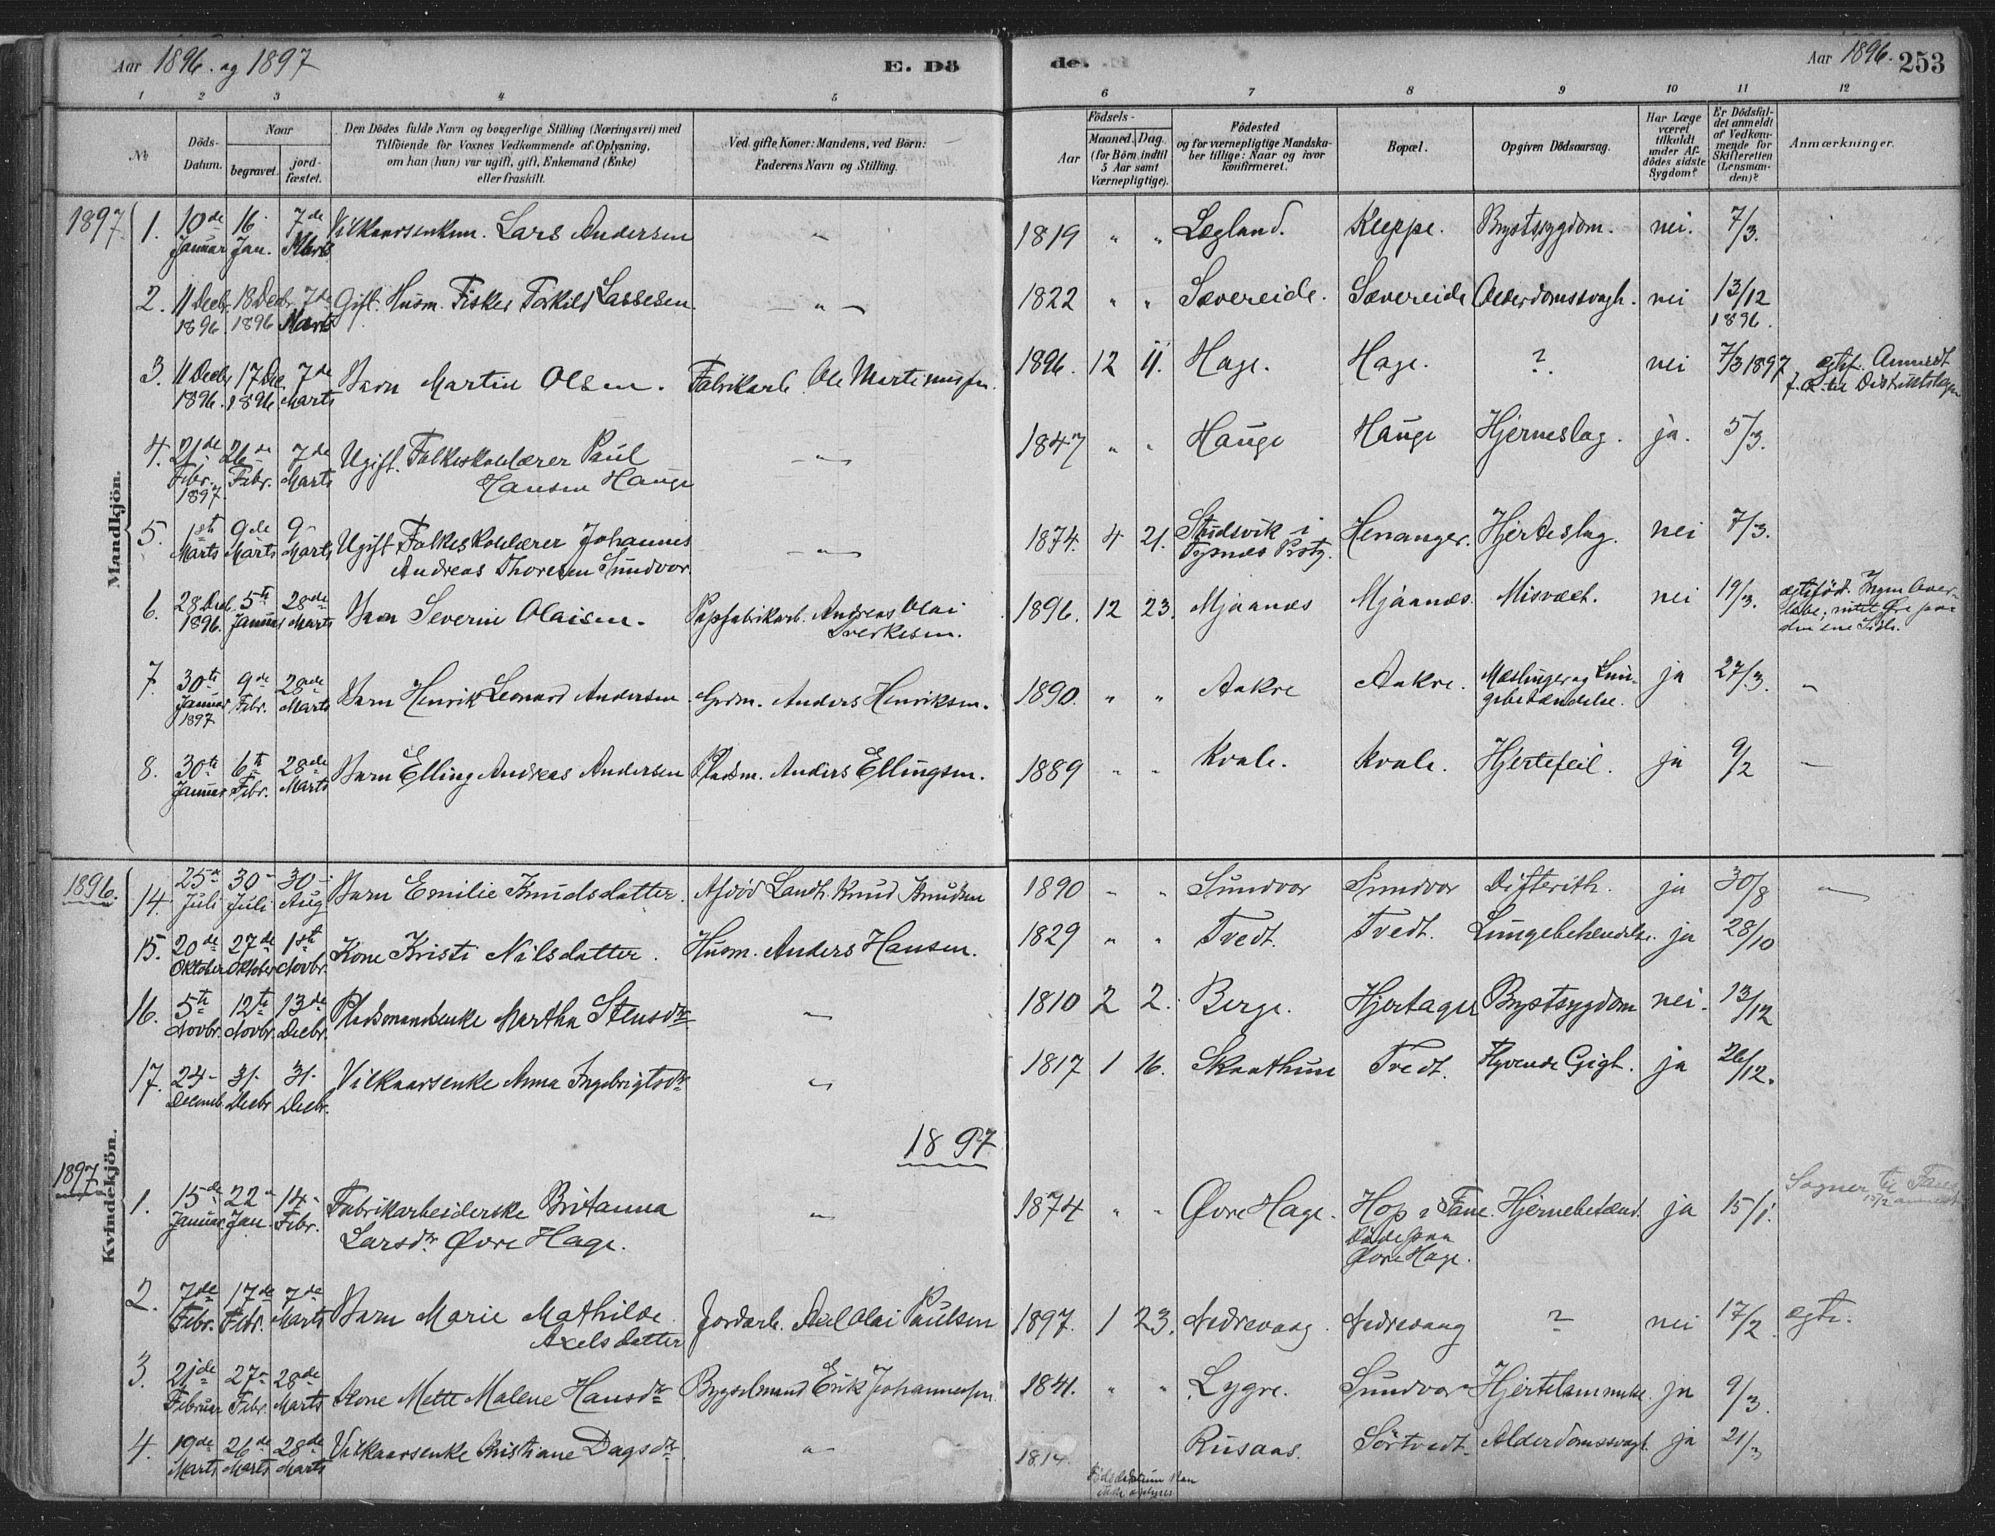 Aar 1896. og 1897
E. Dö
de.
Aar 1896.
253
1 2 3 4 5 6 7 8 9 10 11 12
№
Döds-
Datum.
Naar
begravet.
jord-
fæstet.
Den Dödes fulde Navn og borgerlige Stilling (Næringsvei) med
Tilföiende for Voxnes Vedkommende af Oplysning,
om han (hun) var ugift, gift, Enkemand (Enke)
eller fraskilt.
Ved gifte Koner: Mandens, ved Börn:
Faderens Navn og Stilling.
Födsels-
Aar
Maaned. Dag.
(for Börn indtil
5 Aar samt
Værnepligtige).
Födested
og for værnepligtige Mandska-
ber tillige: Naar og hvor
konfirmeret.
Bopæl.
Opgiven Dödsaarsag.
Har Læge
været
tilkaldt
under Af-
dödes sidste
Sygdom?
Er Dödsfal-
det anmeldt
af Vedkom-
mende for
Skifteretten
(Lensman-
den)?
Anmærkninger.
Mandkjön.
1897.
1. 10de Januar 16. Jan. 7de Marts Vilkaarsenkm. Lars Andersen " 1819 " " Legland. Kleppe. Brystsygdom. nei. 7/3.
2. 11 Decbr. 1896 18 Decbr. 1896 7de Marts Gift. Husm. Fisker Torkild Lassesen " 1822 " " Sævereide. Sævereide Alderdomssvagh. nei 13/12 1896.
3. 11 Decbr. 1896. 17 Dec. 1896 7de Marts Barn Martin Olsen. Fabrikarb. Ole Martinussen. 1896. 12 11. Hage. Hage. ? nei 7/3 1897 ægtef. Anmeldt
til Distriktslægen
4. 21de Febr. 1897. 26de Febr. 7de Marts Ugift. Folkeskolelærer Paul
Hansen Hauge " 1847 " " Hauge Hauge Hjerneslag. ja. 5/3.
5. 1ste Marts 9de Marts 9- Marts Ugift Folkeskolelærer Johannes
Andreas Thoresen Sundvor. " 1874. 4 21. Studsvik i
Tysnes Prstg. Henanger. Hjerteslag. nei 7/3.
6. 28 Decbr. 1896. 5te Januar 28de Marts Barn Severin Olaisen. Papfabrikarb. Andreas Olai
Sverkesen. 1896. 12 23. Mjaanæs Mjaanæs. Misvæxt. nei 19/3. ægtefød. Ingen Over-
læbe, intet Øre paa
den ene Side.
7. 30te Januar 1897 9de Febr. 28de Marts Barn Henrik Leonard Andersen Grdm. Anders Henriksen. 1890. " " Aakre Aakre. Mæslinger og Lun-
gebetændelse. ja 27/3. "
8. 30te Januar 6te Febr. 28de Marts Barn Elling Andreas Andersen Pladsm. Anders Ellingsen. 1889 " " Kvale. Kvale. Hjertefeil. ja 9/2 "
1896.
Kvindekjön.
14. 25de Juli 30- Juli 30- Aug Barn Emilie Knudsdatter. Afdød Landh. Knud Knudsen 1890 " " Sundvor Sundvor Difterith. ja 30/8 "
15. 20de Oktober 27de Oktober 1ste Novbr. Kone Kristi Nilsdatter. Husm. Anders Hansen. 1829 " " Tvedt. Tvedt. Lungebetændelse. ja 28/10
16. 5te Novbr. 12te Novbr. 13de Decbr. Pladsmandsenke Martha Stensdtr " 1810 2 2. Berge. Hjertager Brystsygdom nei. 13/12
17. 24- Decemb. 31- Decbr. 31- Decbr. Vilkaarsenke Anna Ingebrigtsdtr " 1817 1 16. Skaathun Tvedt. Flyvende Gigt. ja 26/12.
1897
1897
1. 15de Januar 22- Jan. 14- Febr. Fabrikarbeiderske Britanna
Larsdtr Øvre Hage. " 1874 " " Øvre Hage. Hop i Fane.
Døde paa
Øvre Hage. Hjernebetænd. ja 15/1. Sogner til Fane
2. 7de Febr. 17de Febr. 7de Marts Barn Marie Mathilde
Axelsdatter Jordarb. Axel Olai Paulsen 1897. 1 23. Nedrevaag. Nedrevaag ? nei 17/2. ægte.
3. 21de Februar 27- Febr. 28de Marts Kone Mette Malene Hansdtr Bygselmand Erik Johannessen. 1841. " " Lygre. Sundvor Hjertelammelse. ja 9/3.
4. 19de Marts 26de Marts 28de Marts Vilkaarsenke Kristiane Dagsdtr. " 1814. Rusaas. Sörtvedt. Alderdomssvagh. ja 21/3
Fødedatum kan
ikke oplyses